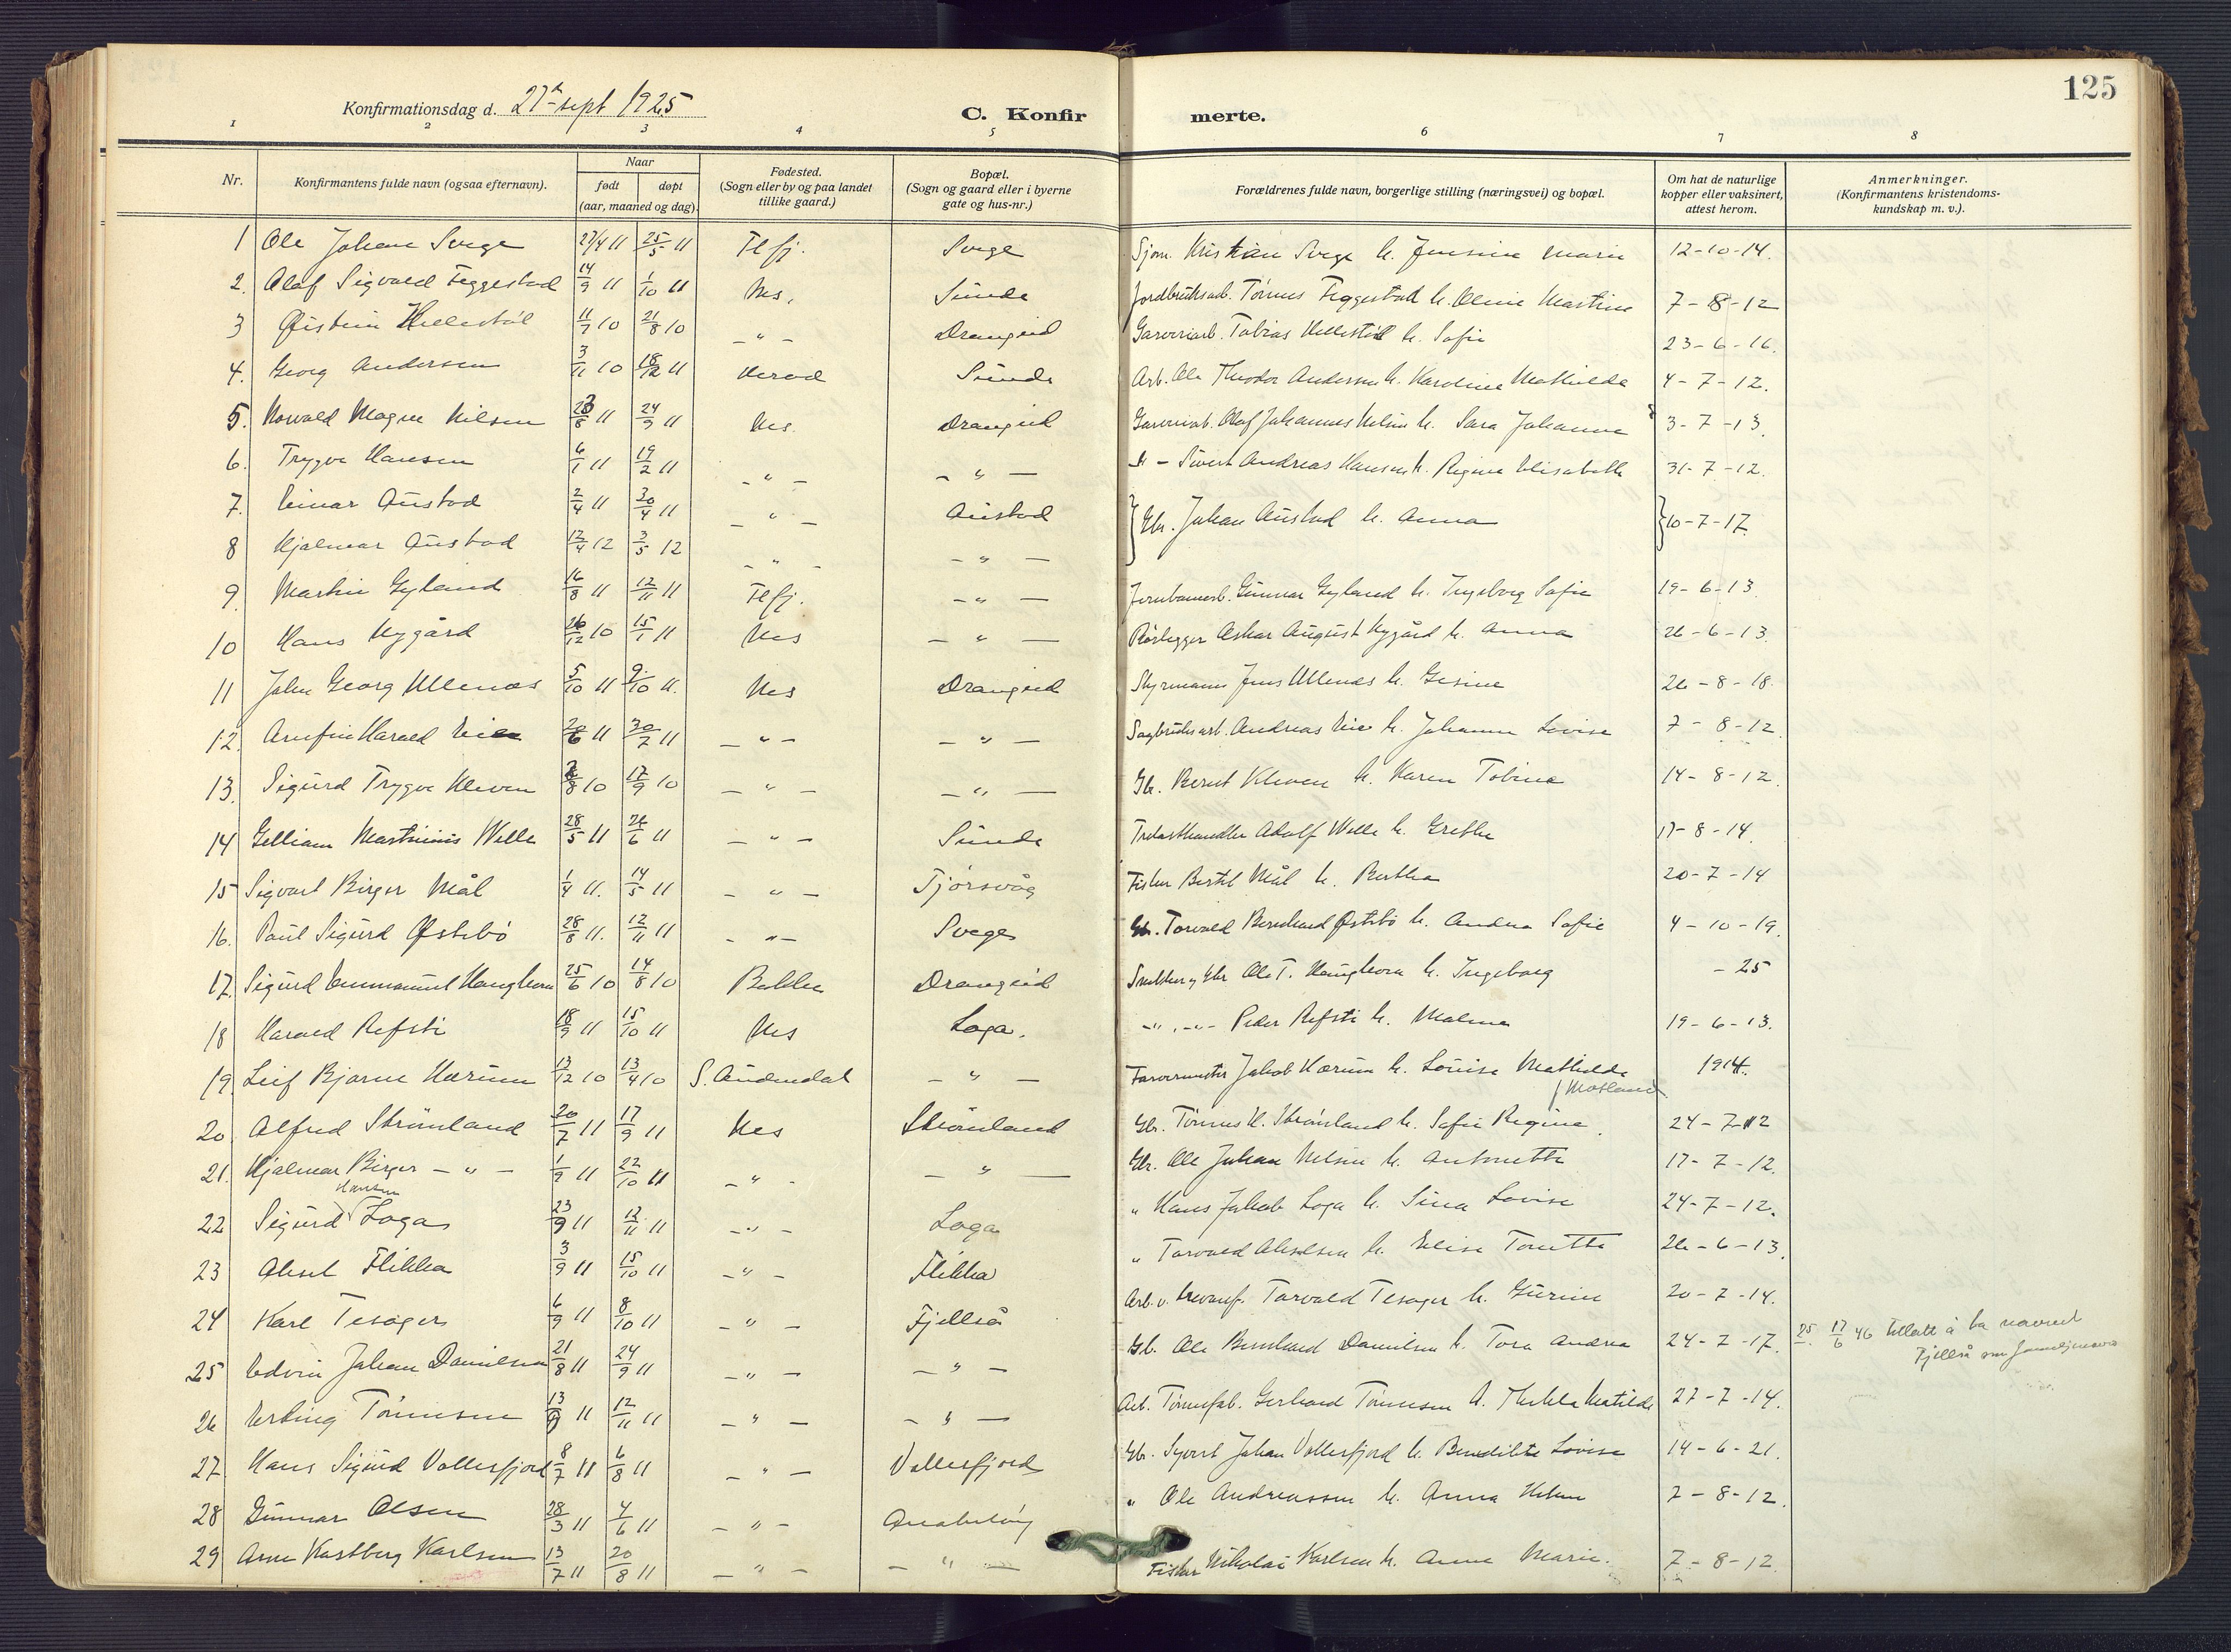 125
Konfirmationsdag d. 27de sept 1925 C. Konfirmerte.
1 2 3 4 5 6 7 8
Nr. Konfirmantens fulde navn (ogsaa efternavn). Naar født døpt (aar, maaned og dag). Fødested. (Sogn eller by og paa landet tillike gaard.) Bopæl. (Sogn og gaard eller i byerne gate og hus-nr.) Forældrenes fulde navn, borgerlige stilling (næringsvei) og bopæl. Om hat de naturlige kopper eller vaksinert, attest herom. Anmerkninger. (Konfirmantens kristendoms-kundskap m. v.).
1 Ole Johan Svege 27/4 11 25/5 11 Flfj. Svege Sjøm. Kristian Svege h. Jensine Marie 12-10-14.
2. Olaf Sigvald Feggestad 14/9 11 1/10 11 Nes, Sunde Jordbruksarb. Tønnes Feggestad h. Oline Martine 7-8-12
3 Øistein Hellestøl 11/7 10 21/8 10 - " - Drangeid Garveriarb. Tobias Hellestøl h. Sofie 23-6-16.
4. Georg Andersen 3/11 10 18/12 11 Herad Sunde Arb. Ole Theodor Andersen h. Karoline Mathilde 4-7-12.
5. Norvald Magne Nilsen 23/8 11 24/9 11 Nes. Drangeid Garveriarb. Olaf Johannes Nilsen h. Sara Johanne 3-7-13.
6. Trygve Hansen 6/1 11 19/2 11 - " - - " - Sivert Andreas Hansen h. Regine Elisabeth 31-7-12.
7. Einar Austad 2/4 11 30/4 11 - " - Austad } Gbr. Johan Austad h. Anna } 10-7-17
8 Hjalmar Austad 12/4 12 3/5 12 - " - - " -
9. Martin Gyland 16/8 11 12/11 11 Flfj. - " - Jernbanearb. Gunnar Gyland h. Ingeborg Sofie 19-6-13.
10 Hans Nygård 26/12 10 15/1 11 Nes - " - Rørlegger Oskar August Nygård h. Anna 26-6-13.
11 John Georg Ullenæs 5/10 11 9/10 11. Nes Drangeid Styrmann Jens Ullenæs h. Gesine 26-8-18.
12. Arnfin Harald Eie 20/6 11 30/7 11 - " - - " - Sagbruksarb. Andreas Eie h. Johanne Lovise 7-8-12.
13. Sigurd Trygve Kleven /8 10 17/9 10 - " - - " - Gbr. Bernt Kleven h. Karen Tobine 14-8-12.
14 Gelliam Martinius Welle 28/5 11 26/6 11 - " - Sunde Trelasthandler Adolf Welle h. Grethe 17-8-14.
15 Sigvart Birger Mål 1/4 11. 14/5 11 - " - Tjørsvåg Fisker Bertil Mål h. Bertha 20-7-14
16. Paul Sigurd Østebø 28/8 11. 12/11 11 - " - Svege Gbr. Torvald Bernhard Østebø h. Andrea Sofie 4-10-19.
17. Sigurd Emmanuel Haughom 25/6 10 14/8 10 Bakke Drangeid Snekker og Gbr Ole T. Haughom h. Ingeborg -25
18 Harald Refsti 18/9 11 15/10 11 Nes Loga. - " - " - Peder Refsti h. Malena 19-6-13.
19. Leif Bjarne Hærum 13/12 10 13/4 10 S. Audnedal - " - Farvermester Jakob Hærum h. Louise Mathilde f. Motland 1914.
20. Alfred Strømland 20/7 11 17/9 11 Nes Strømland Gbr. Tønnes N. Strømland h. Sofie Regine. 24-7-12
21. Hjalmar Birger - " - 1/9 11 22/10 11 - " - - " - Gbr. Ole Johan Nelsen h. Antonette 17-7-12.
22 Sigurd Hansen Loga 23/9 11 12/11 11 - " - Loga " Hans Jakob Loga h. Sina Lovise 24-7-12.
23 Aksel Flikka 3/9 11 15/10 11 - " - Flikka " Torvald Akselsen h. Elise Tonette 26-6-13.
24 Karl Tesager 6/9 11 8/10 11 - " - Fjellså Arb. v. Torvald Tesager h. Gurine 20-7-14.
25 Edvin Johan Danielsen 21/8 11 24/9 11 - " - - " - Gb. Ole Bernhard Danielsen h. Tora Andrea 24-7-17. 25. 17/6 46 tillatt å ta navnet Fjellså som familjenavn
26 Erling Tønnesen 13/9 11 12/11 11 - " - - " - Arb. Tønnefab. Gerhard Tønnesen h. Thekla Matilde 27-7-14.
27 Hans Sigurd Vollesfjord 8/7 11 6/8 11 - " - Vollesfjord Gbr. Syvert Johan Vollesfjord h. Bendikte Lovise 14-6-21.
28 Gunnar Olsen 28/3 11 4/6 11 - " - Anabeløy " Ole Andreassen h. Anna Helene 7-8-12.
29 Arne Kastberg Karlsen 13/7 11 20/8 11 - " - - " - Fisker Nikolai Karlsen h. Anne Marie. 7-8-12.